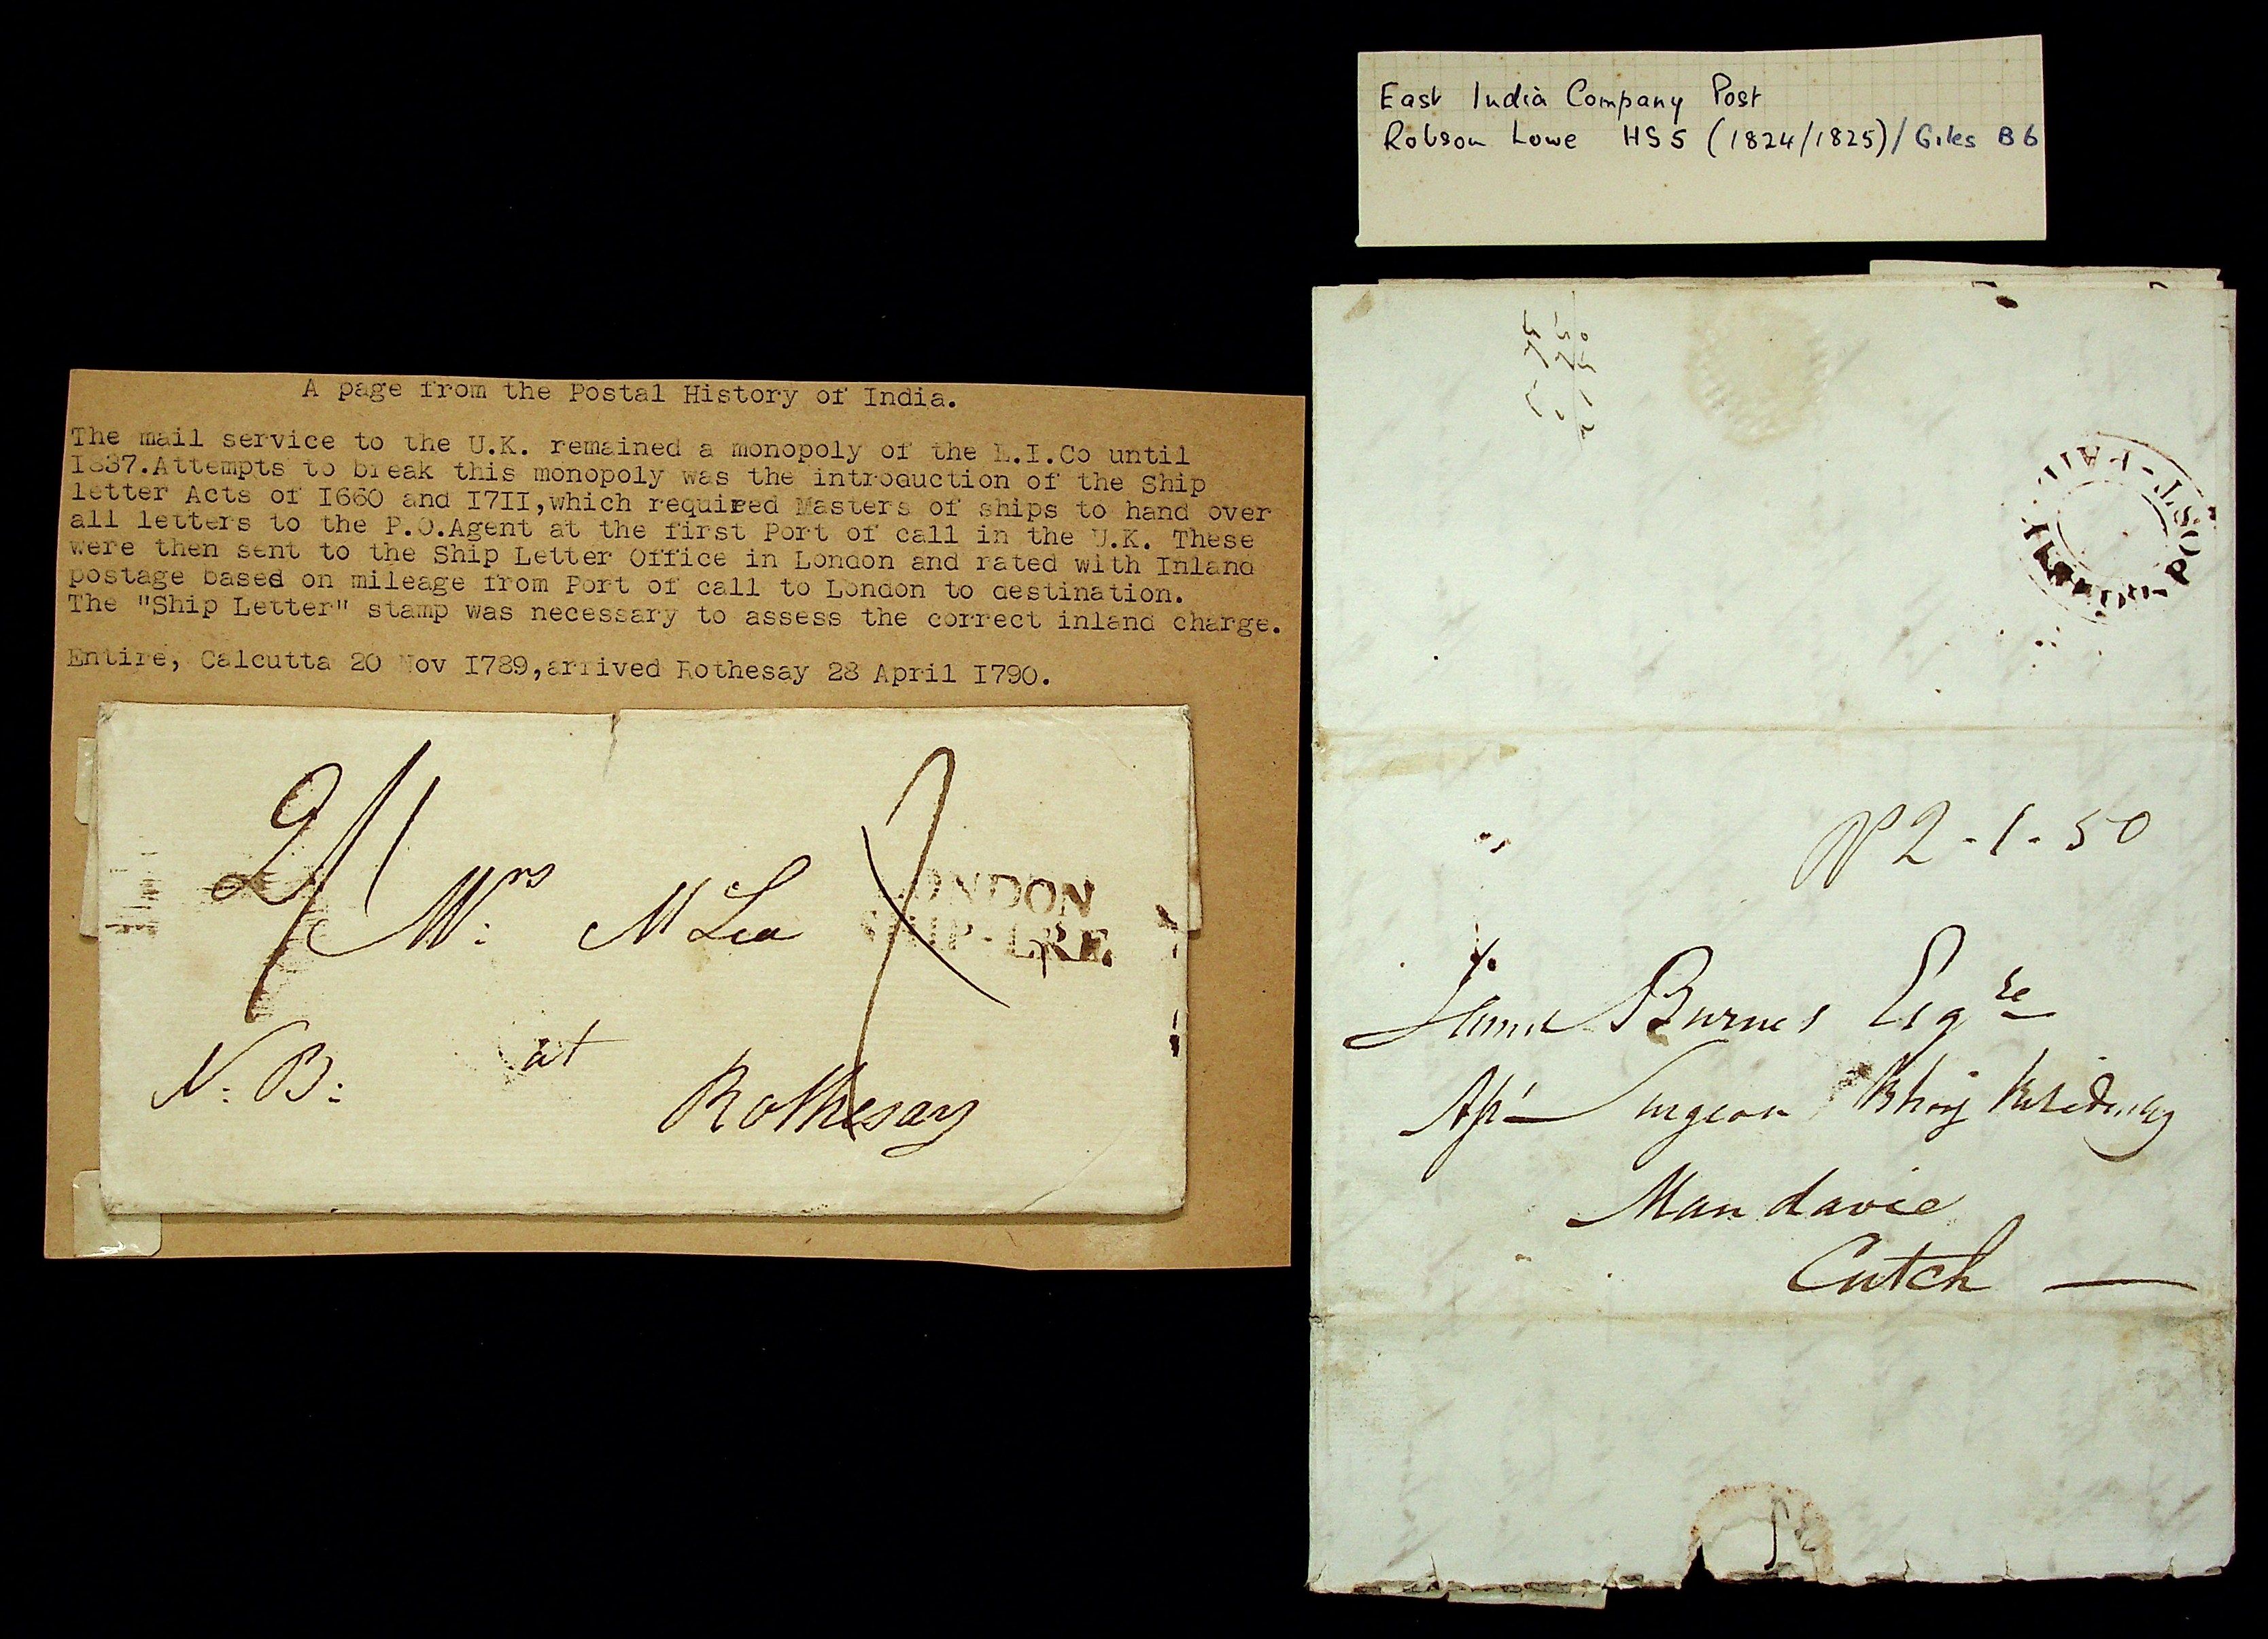 A page from the Postal History of India.
The mail service to the U.K. remained a monopoly of the E.I.Co until
I837.Attempts to break this monopoly was the introduction of the Ship
letter Acts of I660 and I7II,which required Masters of ships to hand over
all letters to the P.O.Agent at the first Port of call in the U.K. These
were then sent to the Ship Letter Office in London and rated with Inland
postage based on mileage from Port of call to London to destination.
The "Ship Letter" stamp was necessary to assess the correct inland charge.
Entire, Calcutta 20 Nov I789,arrived Rothesay 28 April I790.
2/1
Mrs: McLea
LONDON
SHIP-LRE.
N: B: at
Rothesay
East India Company Post
Robson Lowe HS5 (1824/1825)/Giles B6
POST-PAID
No 2-1-50
To
James Burnes Esqre
Asst Surgeon Bhooj Residency
Mandavie
Cutch